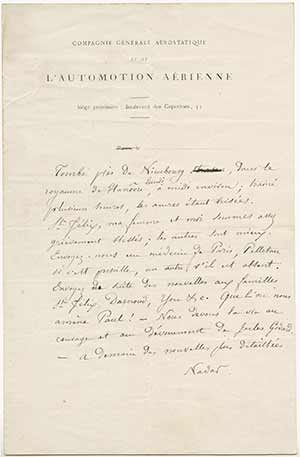 COMPAGNIE GÉNÉRALE AÉROSTATIQUE
ET DE
L'AUTOMOTION AÉRIENNE
Siège provisoire: Boulevard des Capucines, 35
Tombé près de Nienbourg, dans le
royaume de Hanovre lundi à midi environ; traîné
plusieurs heures, les ancres étant brisées.
St Félix, ma femme et moi sommes assez
grièvement blessés; les autres sont mieux.
Envoyez-nous un médecin de Paris, Pelletan
si c'est possible, un autre s'il est absent.
Envoyez de suite des nouvelles aux familles
St Félix, Darnoud, You &c. Que l'on nous
amène Paul! — Nous devons la vie au
courage et au dévouement de Jules Godard
— à demain des nouvelles plus détaillées
Nadar.